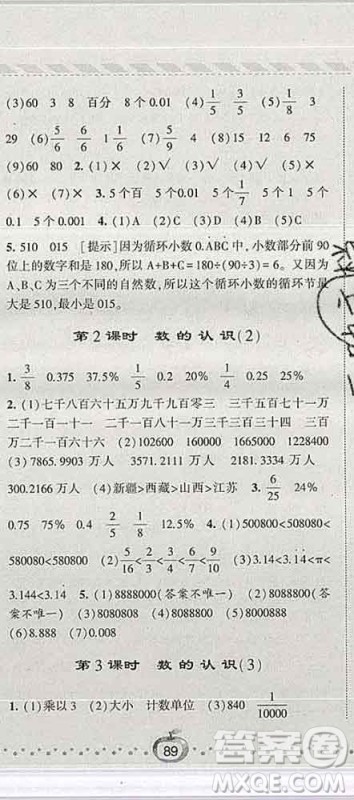 (3)60 3 8 百分 8个0.01 (4)1/5 3/5 (5)1/8 3
29 (6)5/6 5/6 1 1/6 (7)9/4 (8)15 12 6 75
(9)60 80 2.(1)√ (2)√ (3)× (4)√ (5)×
(6)× (7)× 3.5个5 5个1 5个1/7 5个1 5个
0.1 5个0.001 4.(1)C (2)A (3)C
5.510 015 [提示]因为循环小数0.ABC中,小数部分前90
位上的数字和是180,所以A+B+C=180÷(90÷3)=6。又因为
A、B、C为三个不同的自然数,所以这个循环小数的循环节最
大是510,最小是015。
第2课时 数的认识(2)
1.3/8 0.375 37.5% 1/5 0.2 20% 1/4 0.25 25%
2.(1)七千八百六十五万九千九百零三 三千五百七十一万
二千一百一十八 三百万二千一百九十六 二千三百四十
三万二千八百 (2)960000 1640000 10000 1228400
(3)7865.9903万人 3571.2118万人
300.2166万人 (4)新疆>西藏>山西>江苏 3.6/25 24%
0.75 75% 2/5 1/8 89.5% 4.(1)500800<508000<
580080<580800 (2)5/16<2/5<3/5<9/10 (3)3.14<3.1̇4̇<π<
3.144<3.15 4.(1)8888000(答案不唯一) (2)8088800(答
案不唯一) (3)8808000(答案不唯一) (4)8088008
(6)8.888 (7)0.008
第3课时 数的认识(3)
1.(1)乘以3 (2)大小 计数单位 (3)840 1/10000
89
答案圈
MXQE.COM